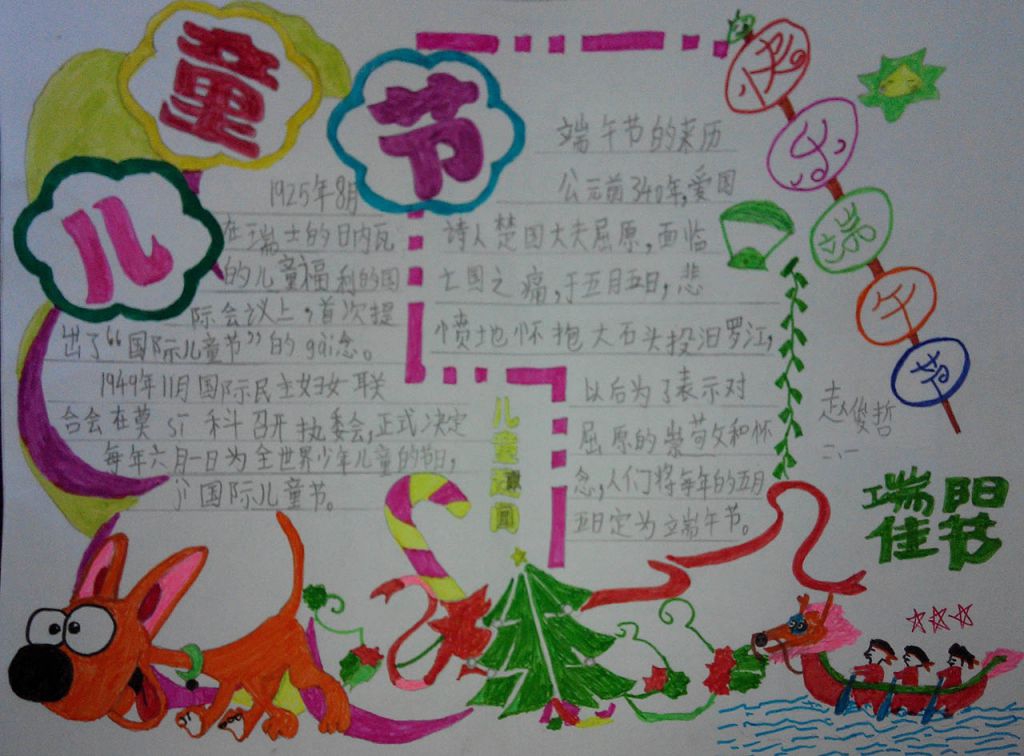 儿童节
1925年8月
在瑞士的日内瓦
的儿童福利的国
际会议上，首次提
出了“国际儿童节”的gài念。
1949年11月国际民主妇女联
合会在莫sī科召开执委会，正式决定
每年六月一日为全世界少年儿童的节日，
jí国际儿童节。
端午节的来历
公元前340年，爱国
诗人楚国大夫屈原，面临
亡国之痛，于五月五日，悲
愤地怀抱大石头投汨罗江，
以后为了表示对
屈原的崇苟文和怀
念，人们将每年的五月
五日定为端午节。
儿童
闻
快乐端午节
赵俊哲
二·一
端阳
佳节